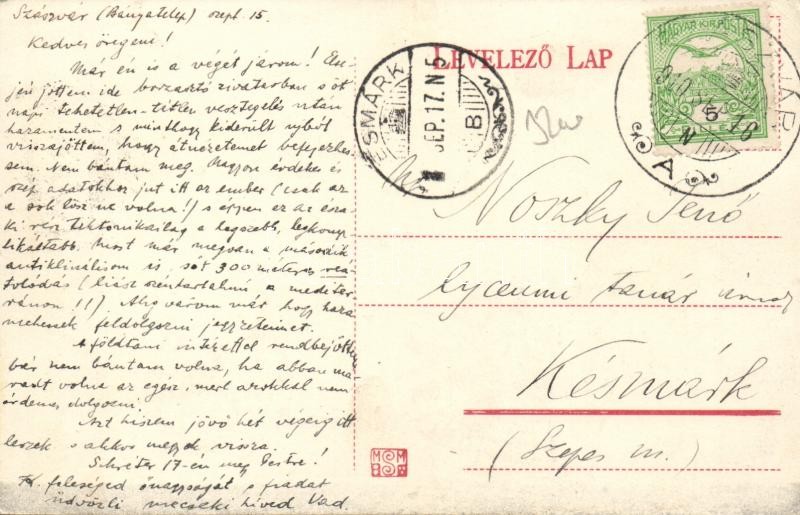 Szászvár (Bányatelep) szept. 15.
Kedves öregem!
Már én is a végét járom! Én-
jén jöttem ide borzasztó zivatarban s öt
napi tehetetlen-tétlen vesztegelés után
hazamentem s minthogy kiderült ujból
visszajöttem, hogy átnézetemet befejezhes-
sem. Nem bántam meg. Nagyon érdekes és
szép adatokhoz jut itt az ember (csak az
a sok lösz ne volna!) s éppen ez az észa-
ki rész tektonikailag a legszebb, legkomp-
likáltabb. Most már megvan a második
antiklinálisom is, sőt 300 méteres reá-
tolódás (liász szentartalmú a mediter-
ránon!!) Alig várom már hogy haza
mehessek feldolgozni jegyzeteimet.
A földtani intézettel rendbejöttem
bár nem bántam volna, ha abban ma-
radt volna az egész, mert azokkal nem
érdemes dolgozni.
Azt hiszem jövő hét végéig itt
leszek s akkor megyek vissza.
Schréter 17-én megy Pestre!
feleséged őnagyságát s fiadat
üdvözli mecseki híved Vad.
LEVELEZŐ LAP
KÉSMÁRK
SEP. 17. N 5
B
MAGYAR KIR. POSTA
5
FILLÉR
A
Noszky Jenő
lyceumi tanár úrnak
Késmárk
(Szepes m.)